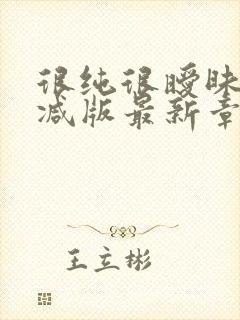 很纯很暧昧
减版最新章
王立彬